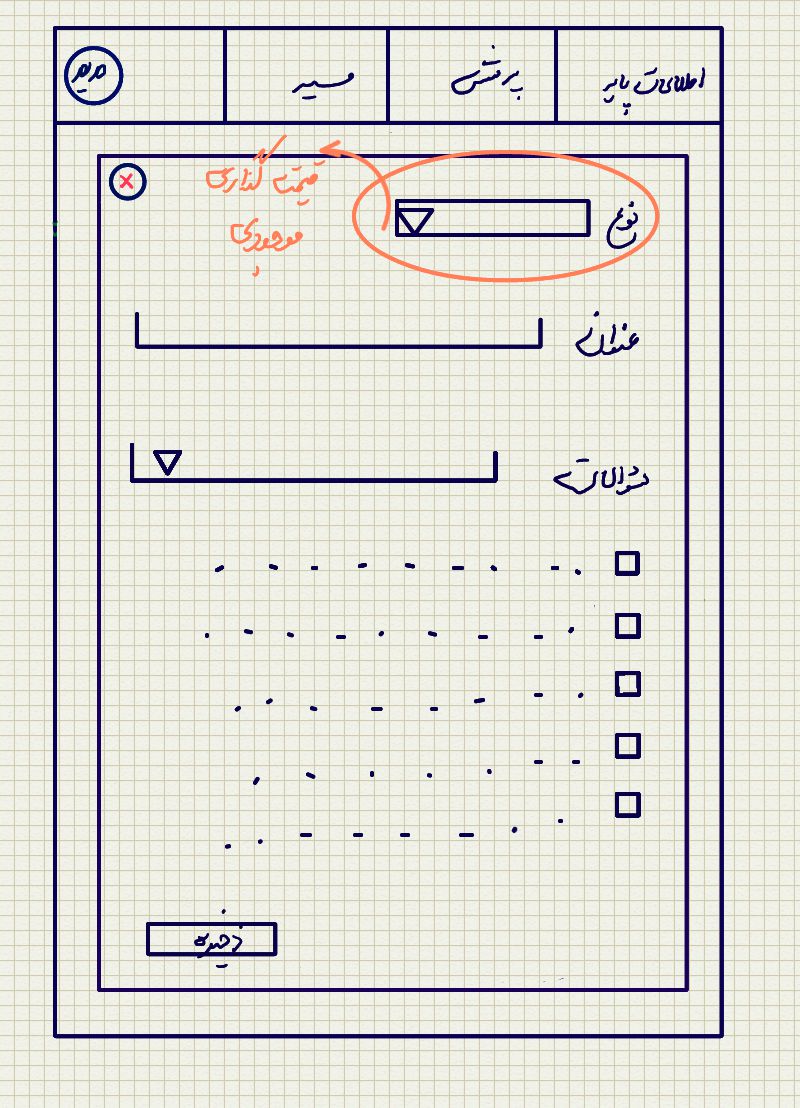 اطلاعات پایه
پرسش
مسیر
مدیر
نوع
قیمت گذاری
موجودی
عنوان
سوالات
ذخیره